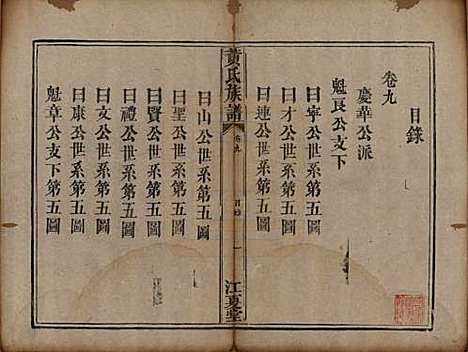 目錄
卷九
慶華公派
魁良公支下
曰寧公世系第五圖
曰才公世系第五圖
曰連公世系第五圖
黃氏族譜
卷九
目錄
一
江夏堂
曰山公世系第五圖
曰聖公世系第五圖
曰賢公世系第五圖
曰禮公世系第五圖
曰文公世系第五圖
曰康公世系第五圖
魁章公支下第五圖